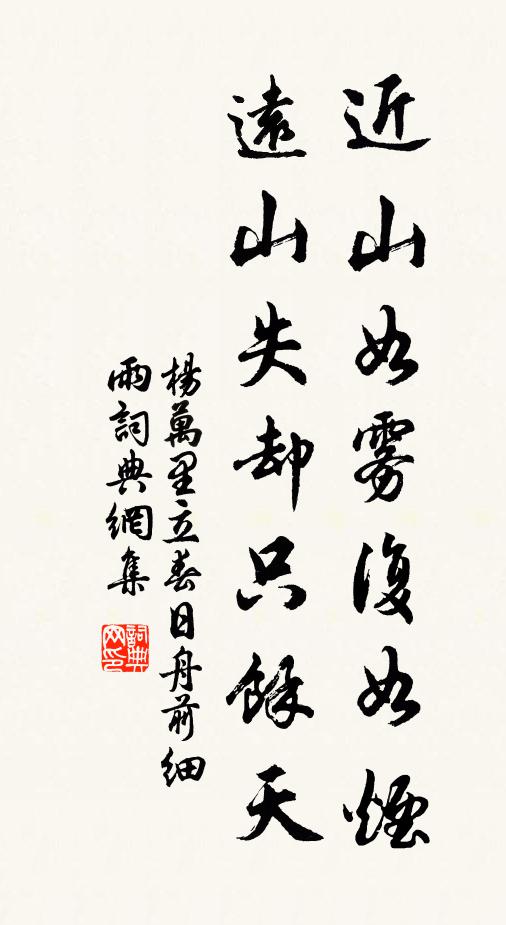 近山如雾復如煙
遠山失却只餘天
楊萬里立春日舟前細
雨詞典網集
詞典
网印